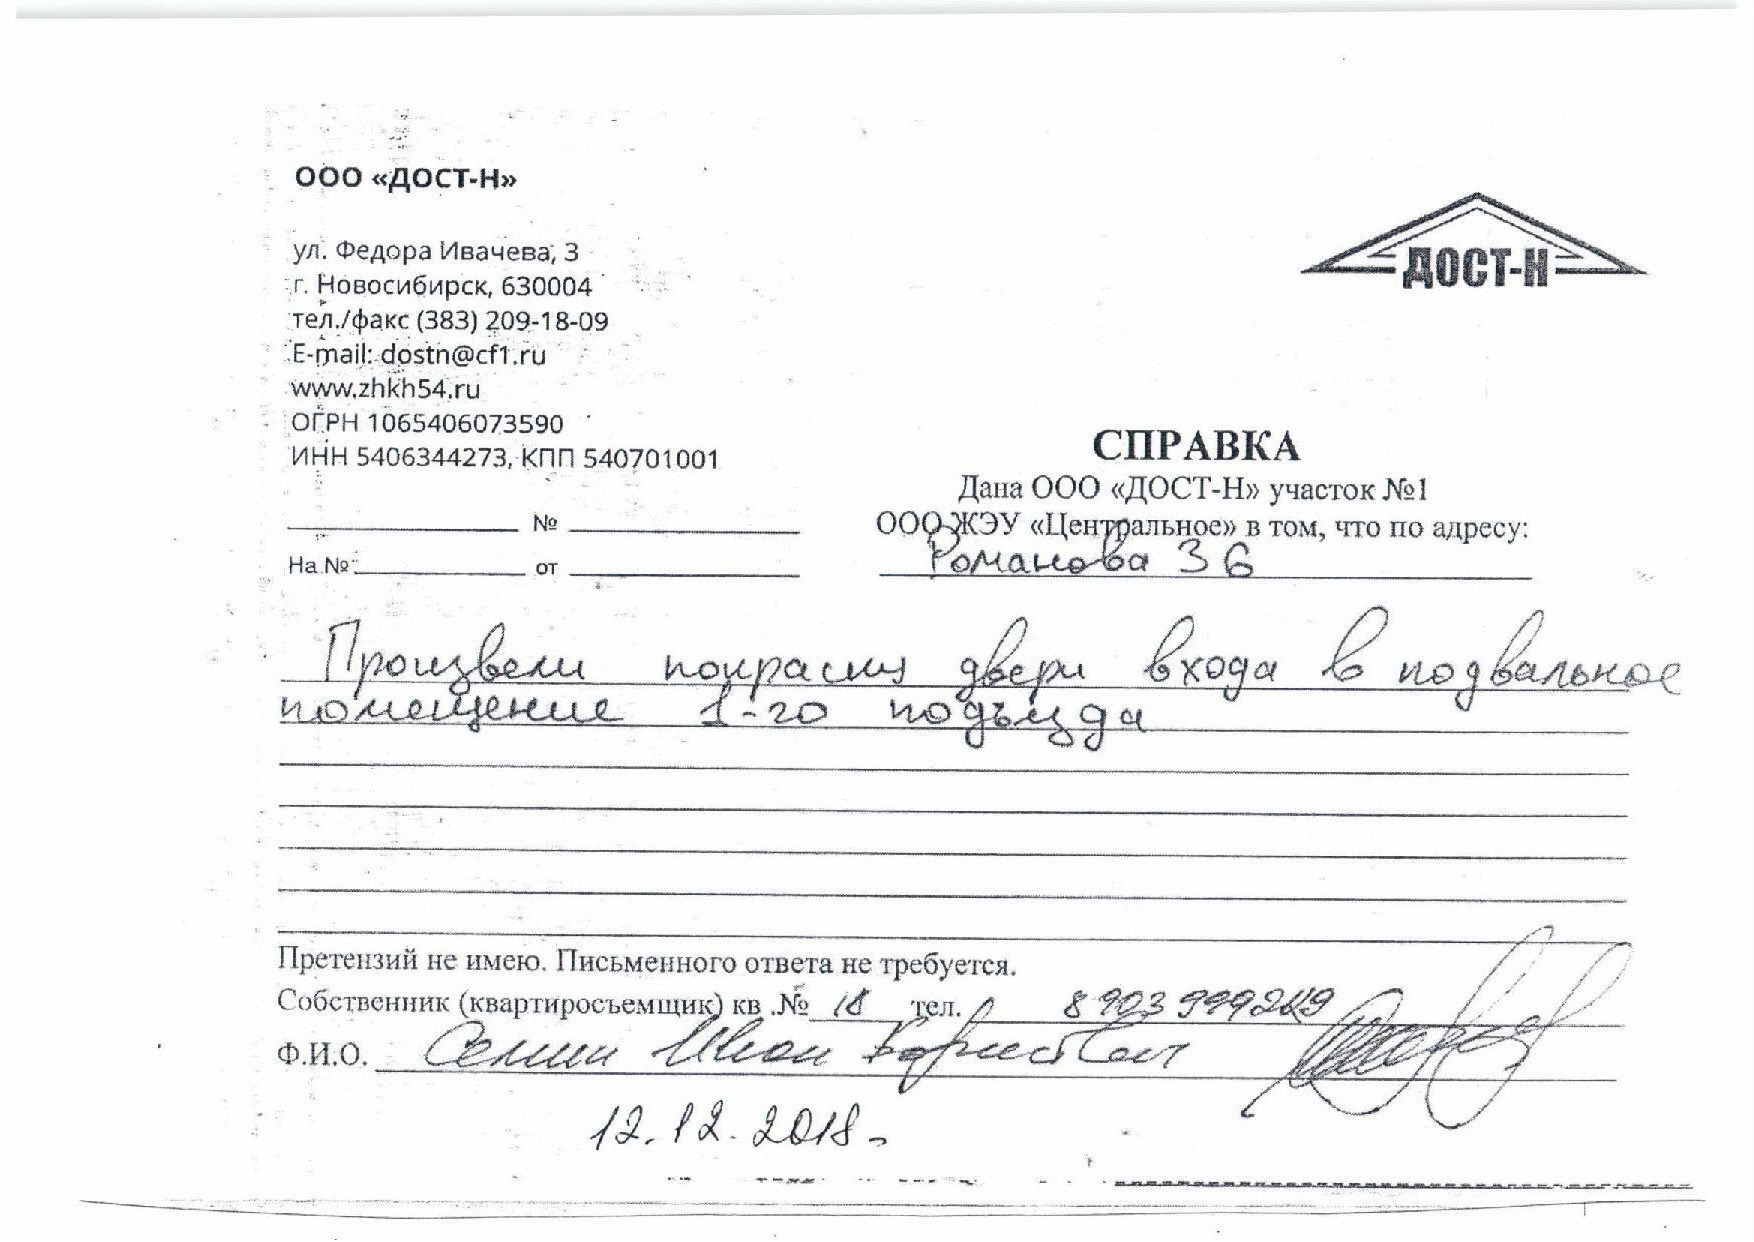 ООО «ДОСТ-Н»
ул. Федора Ивачева, 3
г. Новосибирск, 630004
тел./факс (383) 209-18-09
E-mail: dostn@cf1.ru
www.zhkh54.ru
ОГРН 1065406073590
ИНН 5406344273, КПП 540701001
№
На № от
ДОСТ-Н
СПРАВКА
Дана ООО «ДОСТ-Н» участок №1
ООО ЖЭУ «Центральное» в том, что по адресу:
Романова 36
Произвели покраску двери входа в подвальное
помещение 1-го подъезда
Претензий не имею. Письменного ответа не требуется.
Собственник (квартиросъемщик) кв .№ 18 тел.
Ф.И.О. Борисович
12.12.2018